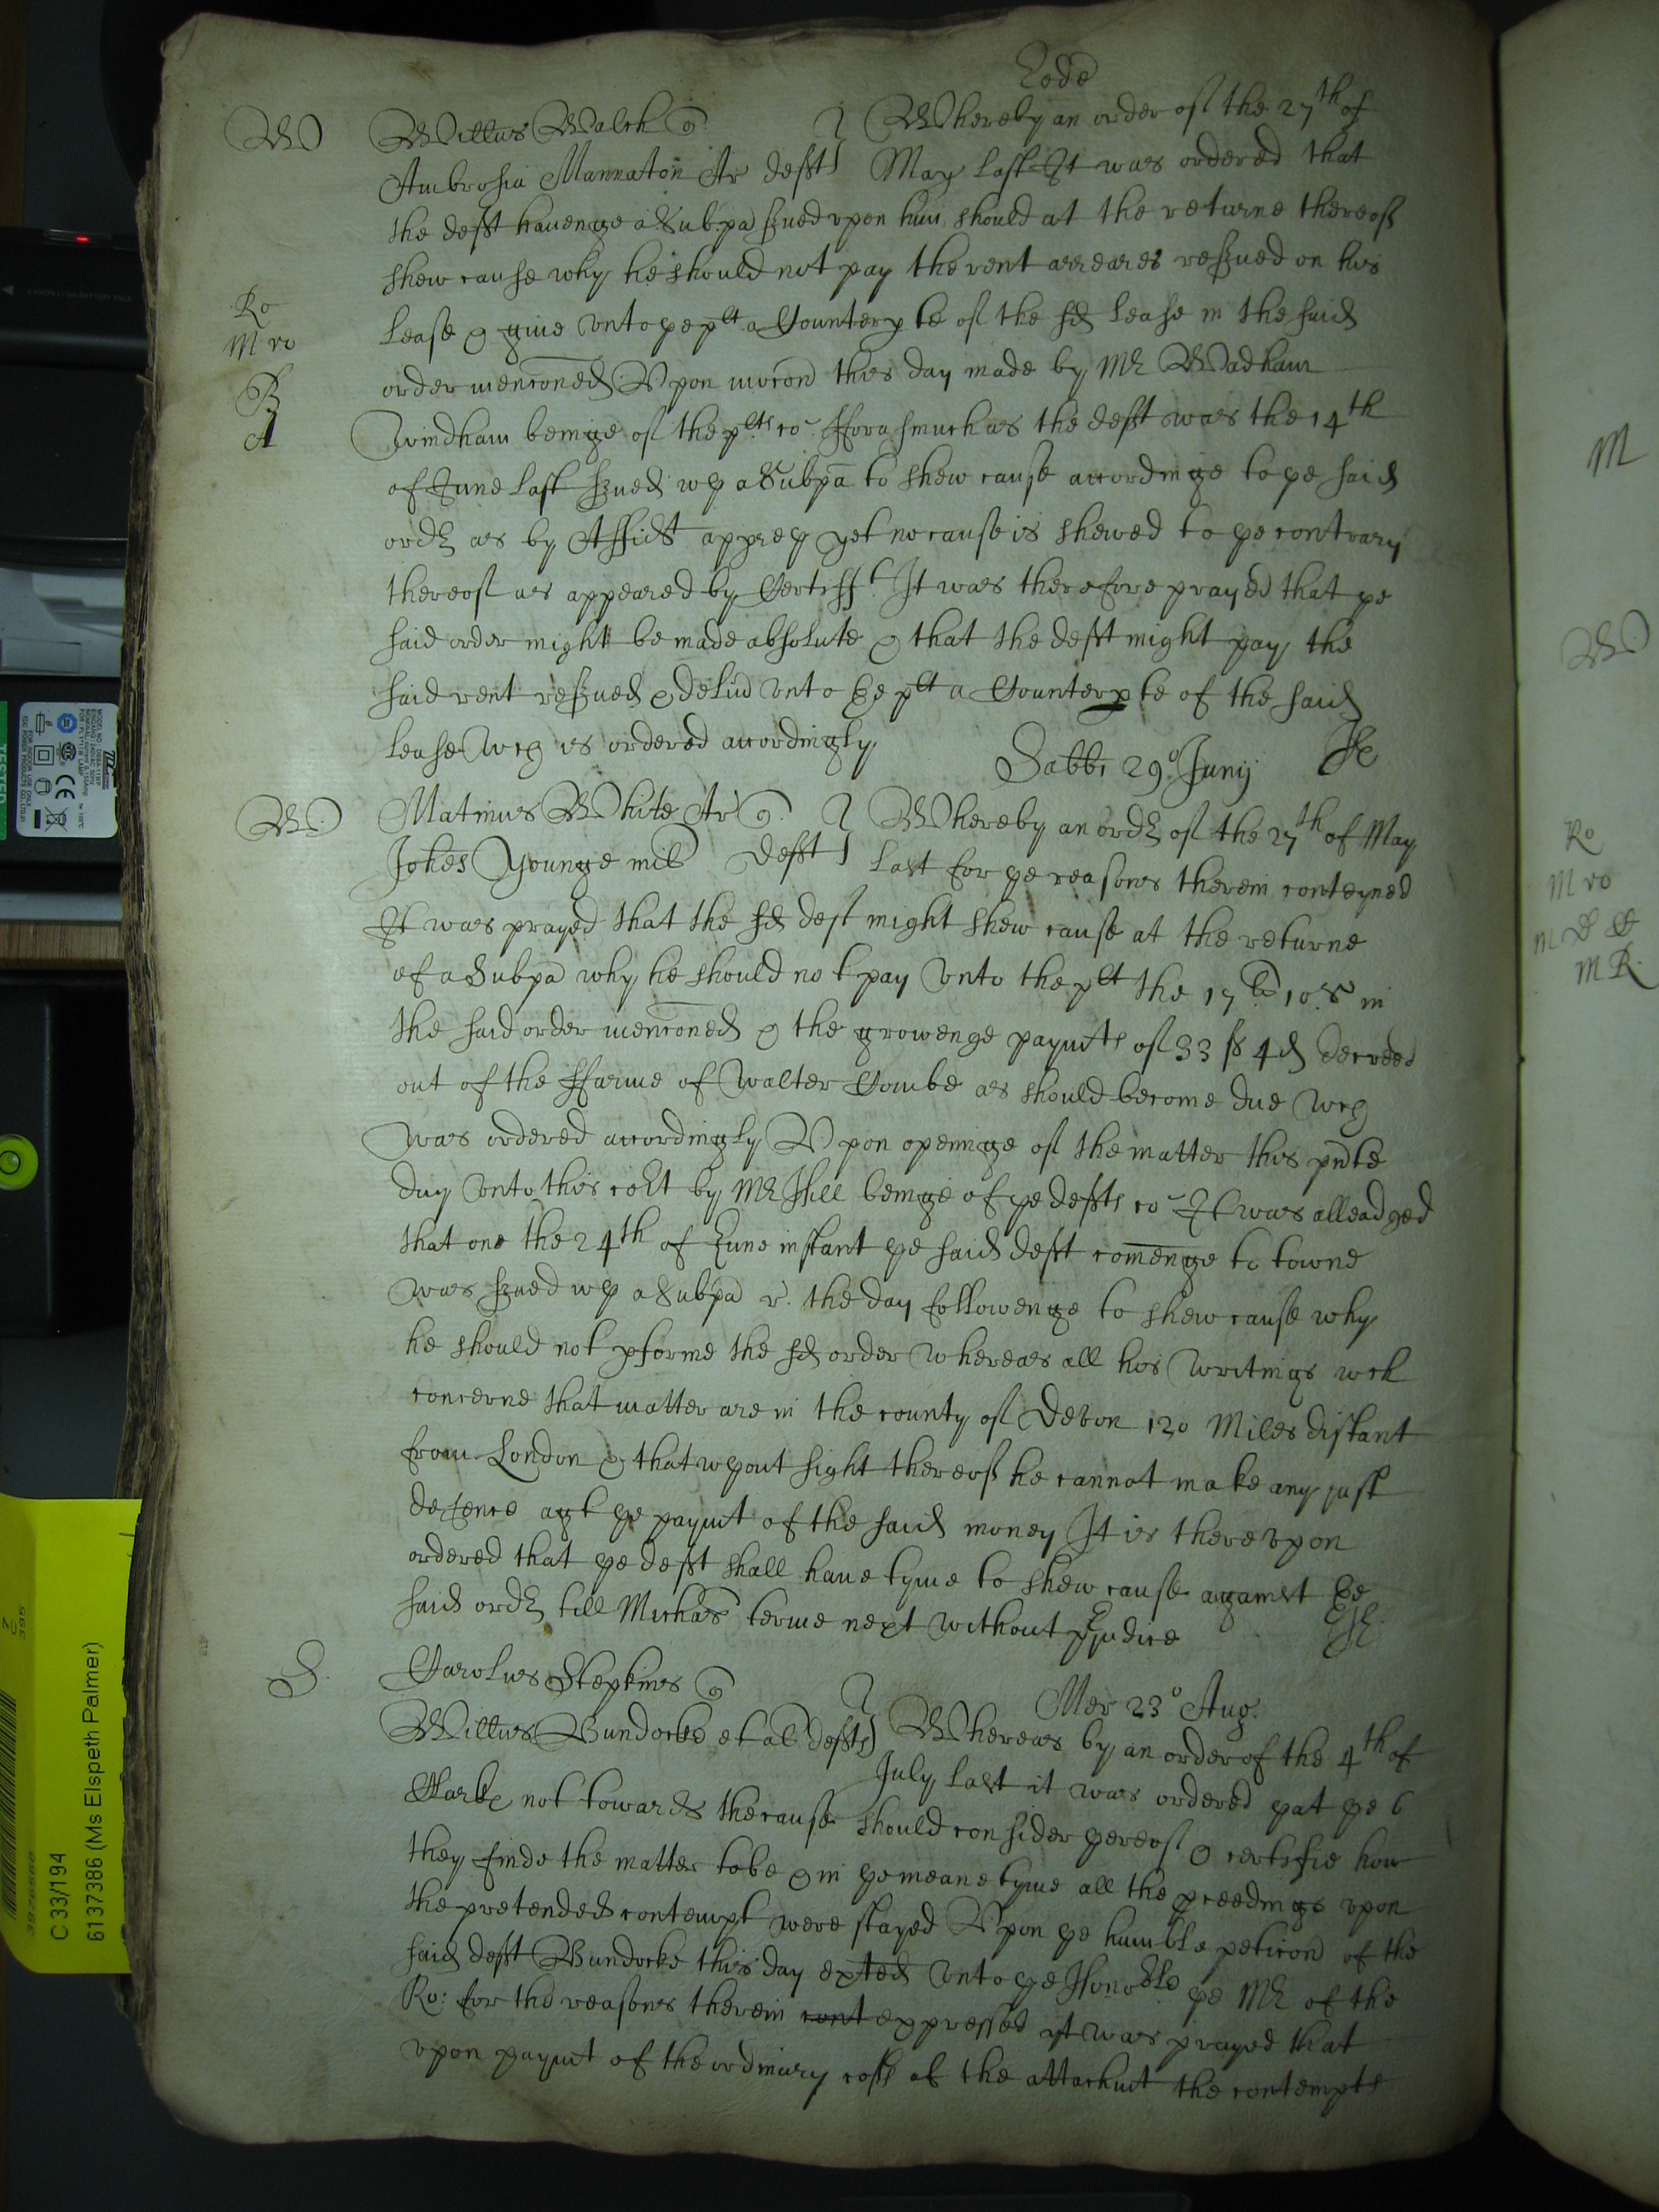 Eode
W Willus Walsh q Whereby an order of the 27th of
Ambrosia Mannaton Ar deft May last It was ordered that
the deft havenge a Subpa sved upon him should at the returne thereof
shew cause why he should not pay the rent arreares resved on his
Ro
lease & give unto ye plt a Counterpte of the sd lease in the said
M ro
order menconed Upon mocon this day made by Mr Wadham
B
Windham beinge of the plts co Fforasmuch as the deft was the 14th
A
of June last sved wth a Subpa to shew cause accordinge to ye said
ordr as by Affidt appreth yet no cause is shewed to ye contrary
thereof as appeared by Certiff It was therefore prayed that ye
said order might be made absolute & that the deft might pay the
said rent resved & delivd unto the plt a Counterpte of the said
lease Wch is ordered accordingly
Sabbi 29o Junij
W Matinus White Ar q Whereby an ordr of the 27th of May
Johes Younge mil deft last for ye reasons therein conteyned
It was prayed that the sd deft might shew cause at the returne
of a Subpa why he should not pay unto the plt the 17li 10s in
the said order menconed & the growenge paymts of 33s 4d decreed
out of the Ffarme of Walter Combe as should become due Wch
was ordered accordingly Upon openinge of the matter this pnte
day unto this cort by Mr Hill beinge of ye defts co It was alleadged
that one the 24th of June instant ye said deft comenge to towne
was sved wth a Subpa r. the day followenge to shew cause why
he should not pforme the sd order whereas all his writings wch
concerne that matter are in the county of Devon 120 Miles distant
from London & that wthout sight thereof he cannot make any just
defence agt ye paymt of the said money It is thereupon
ordered that ye deft shall have tyme to shew cause against the
said ordr till Michas terme next without pjudice
S. Carolus Stepkins q
Mer 23o Aug.
Willus Bundocke et al defts Whereas by an order of the 4th of
July last it was ordered yat ye 6
Clarks not towards the cause should consider yereof & certifie how
they finde the matter to be & in ye meane tyme all the pceedings upon
the pretended contempt were stayed Upon ye humble peticon of the
said deft Bundocke this day exted unto ye Honoble ye Mr of the
Ro: for the reasons therein cont expressed yt was prayed that
upon paymt of the ordinary costs of the attachmt the contempts
M
W
Ro
M ro
M R.
TESTED
C 33/194
6137386 (Ms Elspeth Palmer)